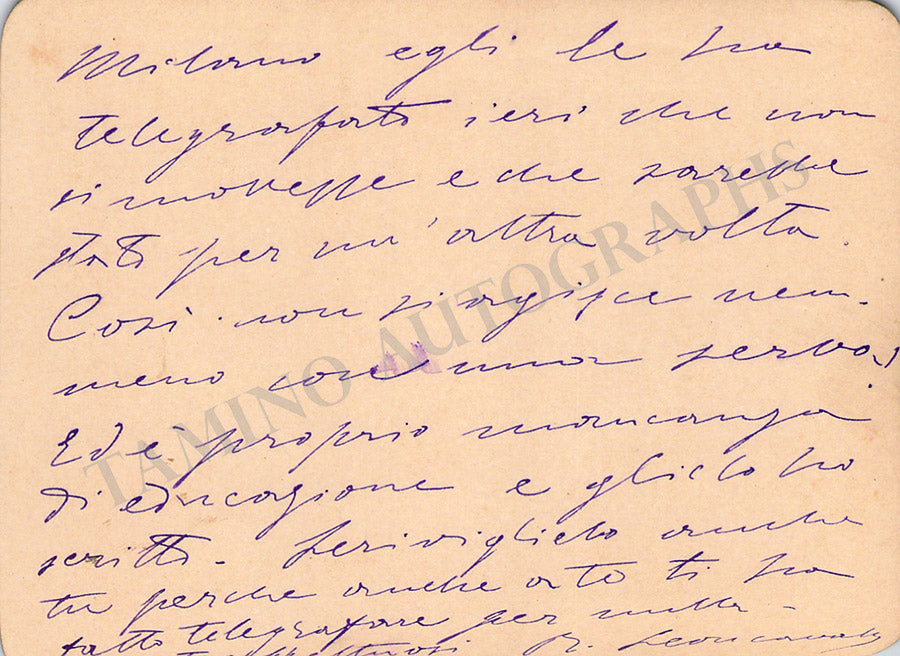 Milano egli le ha
telegrafato ieri che non
si movesse e che sarebbe
stato per un'altra volta.
Così non si agisce nem-
meno con una serva!
Ed è proprio mancanza
di educazione e glielo ho
scritto - Scriviglielo anche
tu perche anche a te ti ha
fatto telegrafare per nulla -
R. Leoncavallo
TAMINO AUTOGRAPHS